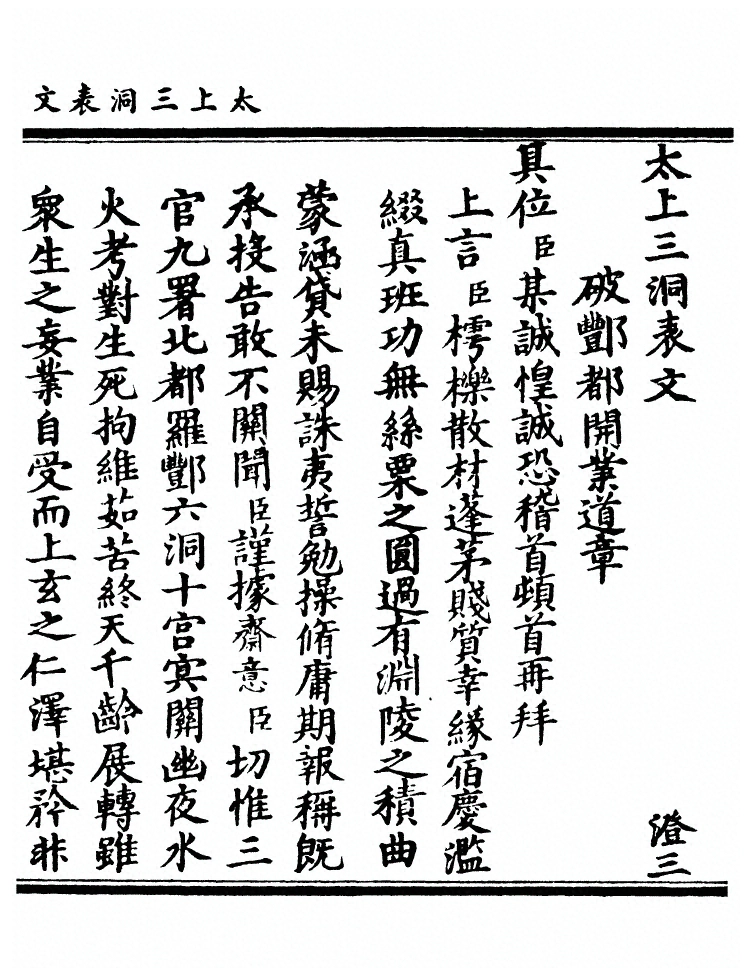 太上三洞表文
太上三洞表文 澄三
破酆都開業道章
具位臣某誠惶誠恐稽首頓首再拜
上言臣樗櫟散材蓬茅賤質幸緣宿慶濫
綴真班功無絲粟之圓過有淵陵之積曲
蒙涵貸未賜誅夷誓勉操脩庸期報稱既
承投告敢不關聞臣謹據齋意臣切惟三
官九署北都羅酆六洞十宮冥關幽夜水
火考對生死拘維茹苦終天千齡展轉雖
衆生之妄業自受而上玄之仁澤堪矜非